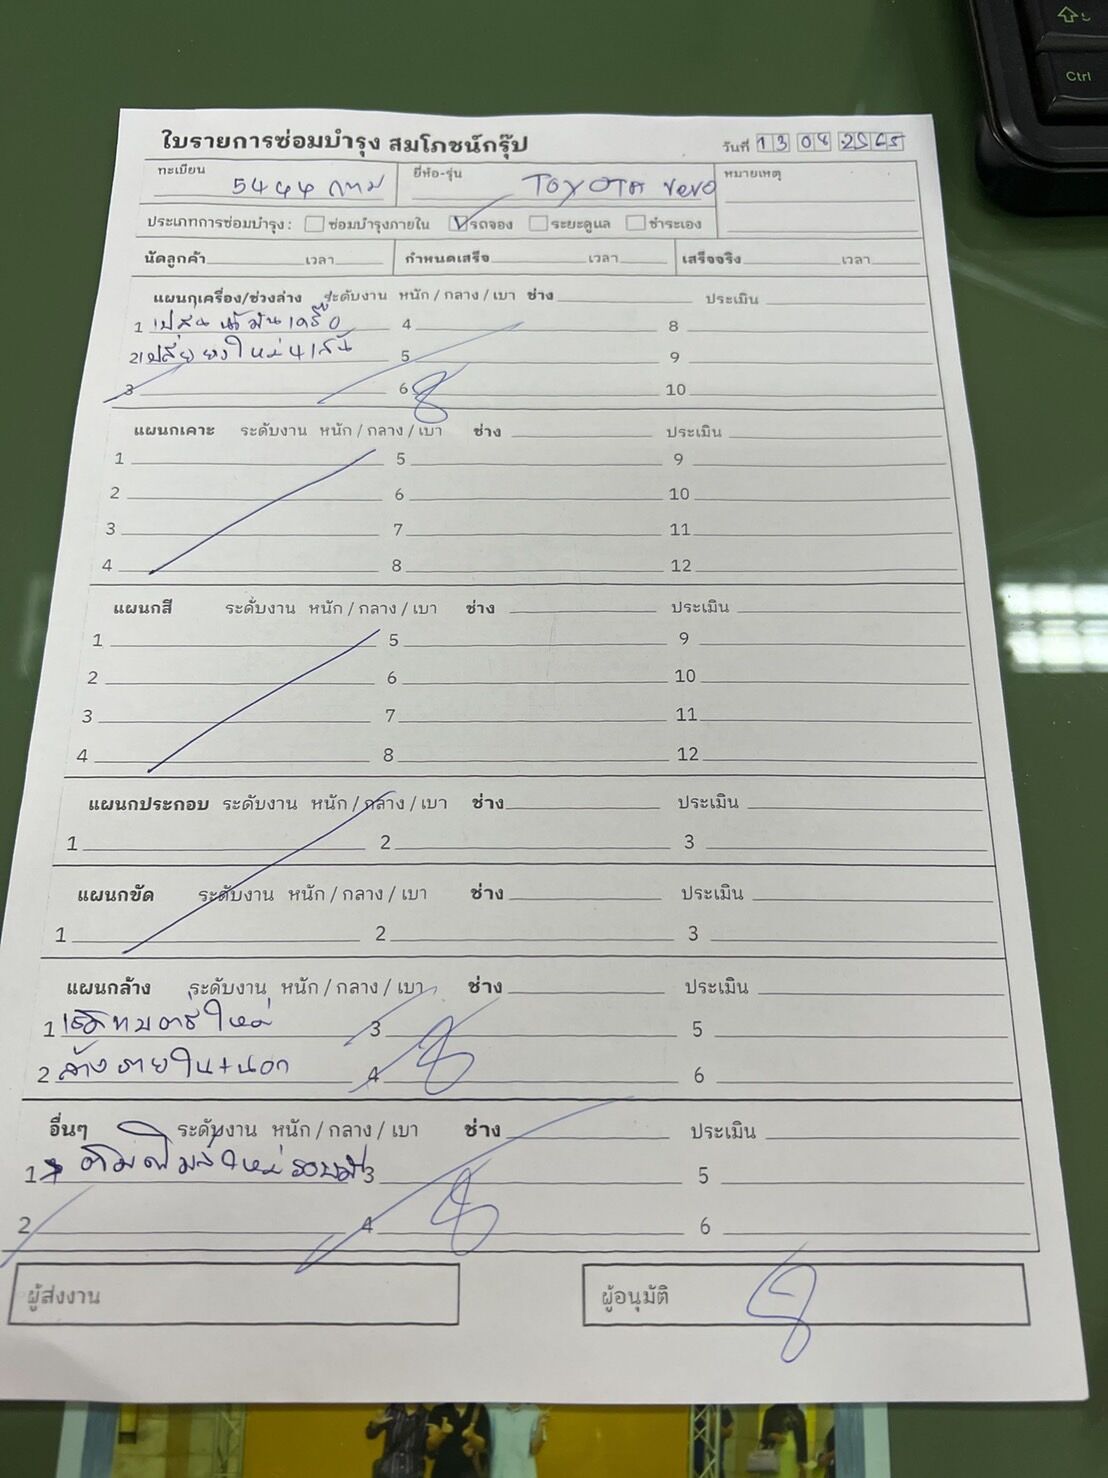 Ctrl
ใบรายการซ่อมบำรุง สมโภชน์กรุ๊ป วันที่ 13 08 2565
ทะเบียน 5444 กทม ยี่ห้อ-รุ่น TOYOTA revo หมายเหตุ
ประเภทการซ่อมบำรุง : ซ่อมบำรุงภายใน รถจอง ระยะดูแล ชำระเอง
นัดลูกค้า เวลา กำหนดเสร็จ เวลา เสร็จจริง เวลา
แผนกเครื่อง/ช่วงล่าง ระดับงาน หนัก / กลาง / เบา ช่าง ประเมิน
1 น้ำมันเครื่อง 4 8
2 ยางใหม่ 4 เส้น 5 9
3 6 10
แผนกเคาะ ระดับงาน หนัก / กลาง / เบา ช่าง ประเมิน
1 5 9
2 6 10
3 7 11
4 8 12
แผนกสี ระดับงาน หนัก / กลาง / เบา ช่าง ประเมิน
1 5 9
2 6 10
3 7 11
4 8 12
แผนกประกอบ ระดับงาน หนัก / กลาง / เบา ช่าง ประเมิน
1 2 3
แผนกขัด ระดับงาน หนัก / กลาง / เบา ช่าง ประเมิน
1 2 3
แผนกล้าง ระดับงาน หนัก / กลาง / เบา ช่าง ประเมิน
1 ใหม่ 3 5
2 ล้างภายใน+นอก 4 6
อื่นๆ ระดับงาน หนัก / กลาง / เบา ช่าง ประเมิน
1 ติดฟิล์มใหม่รอบคัน 3 5
2 4 6
ผู้ส่งงาน ผู้อนุมัติ